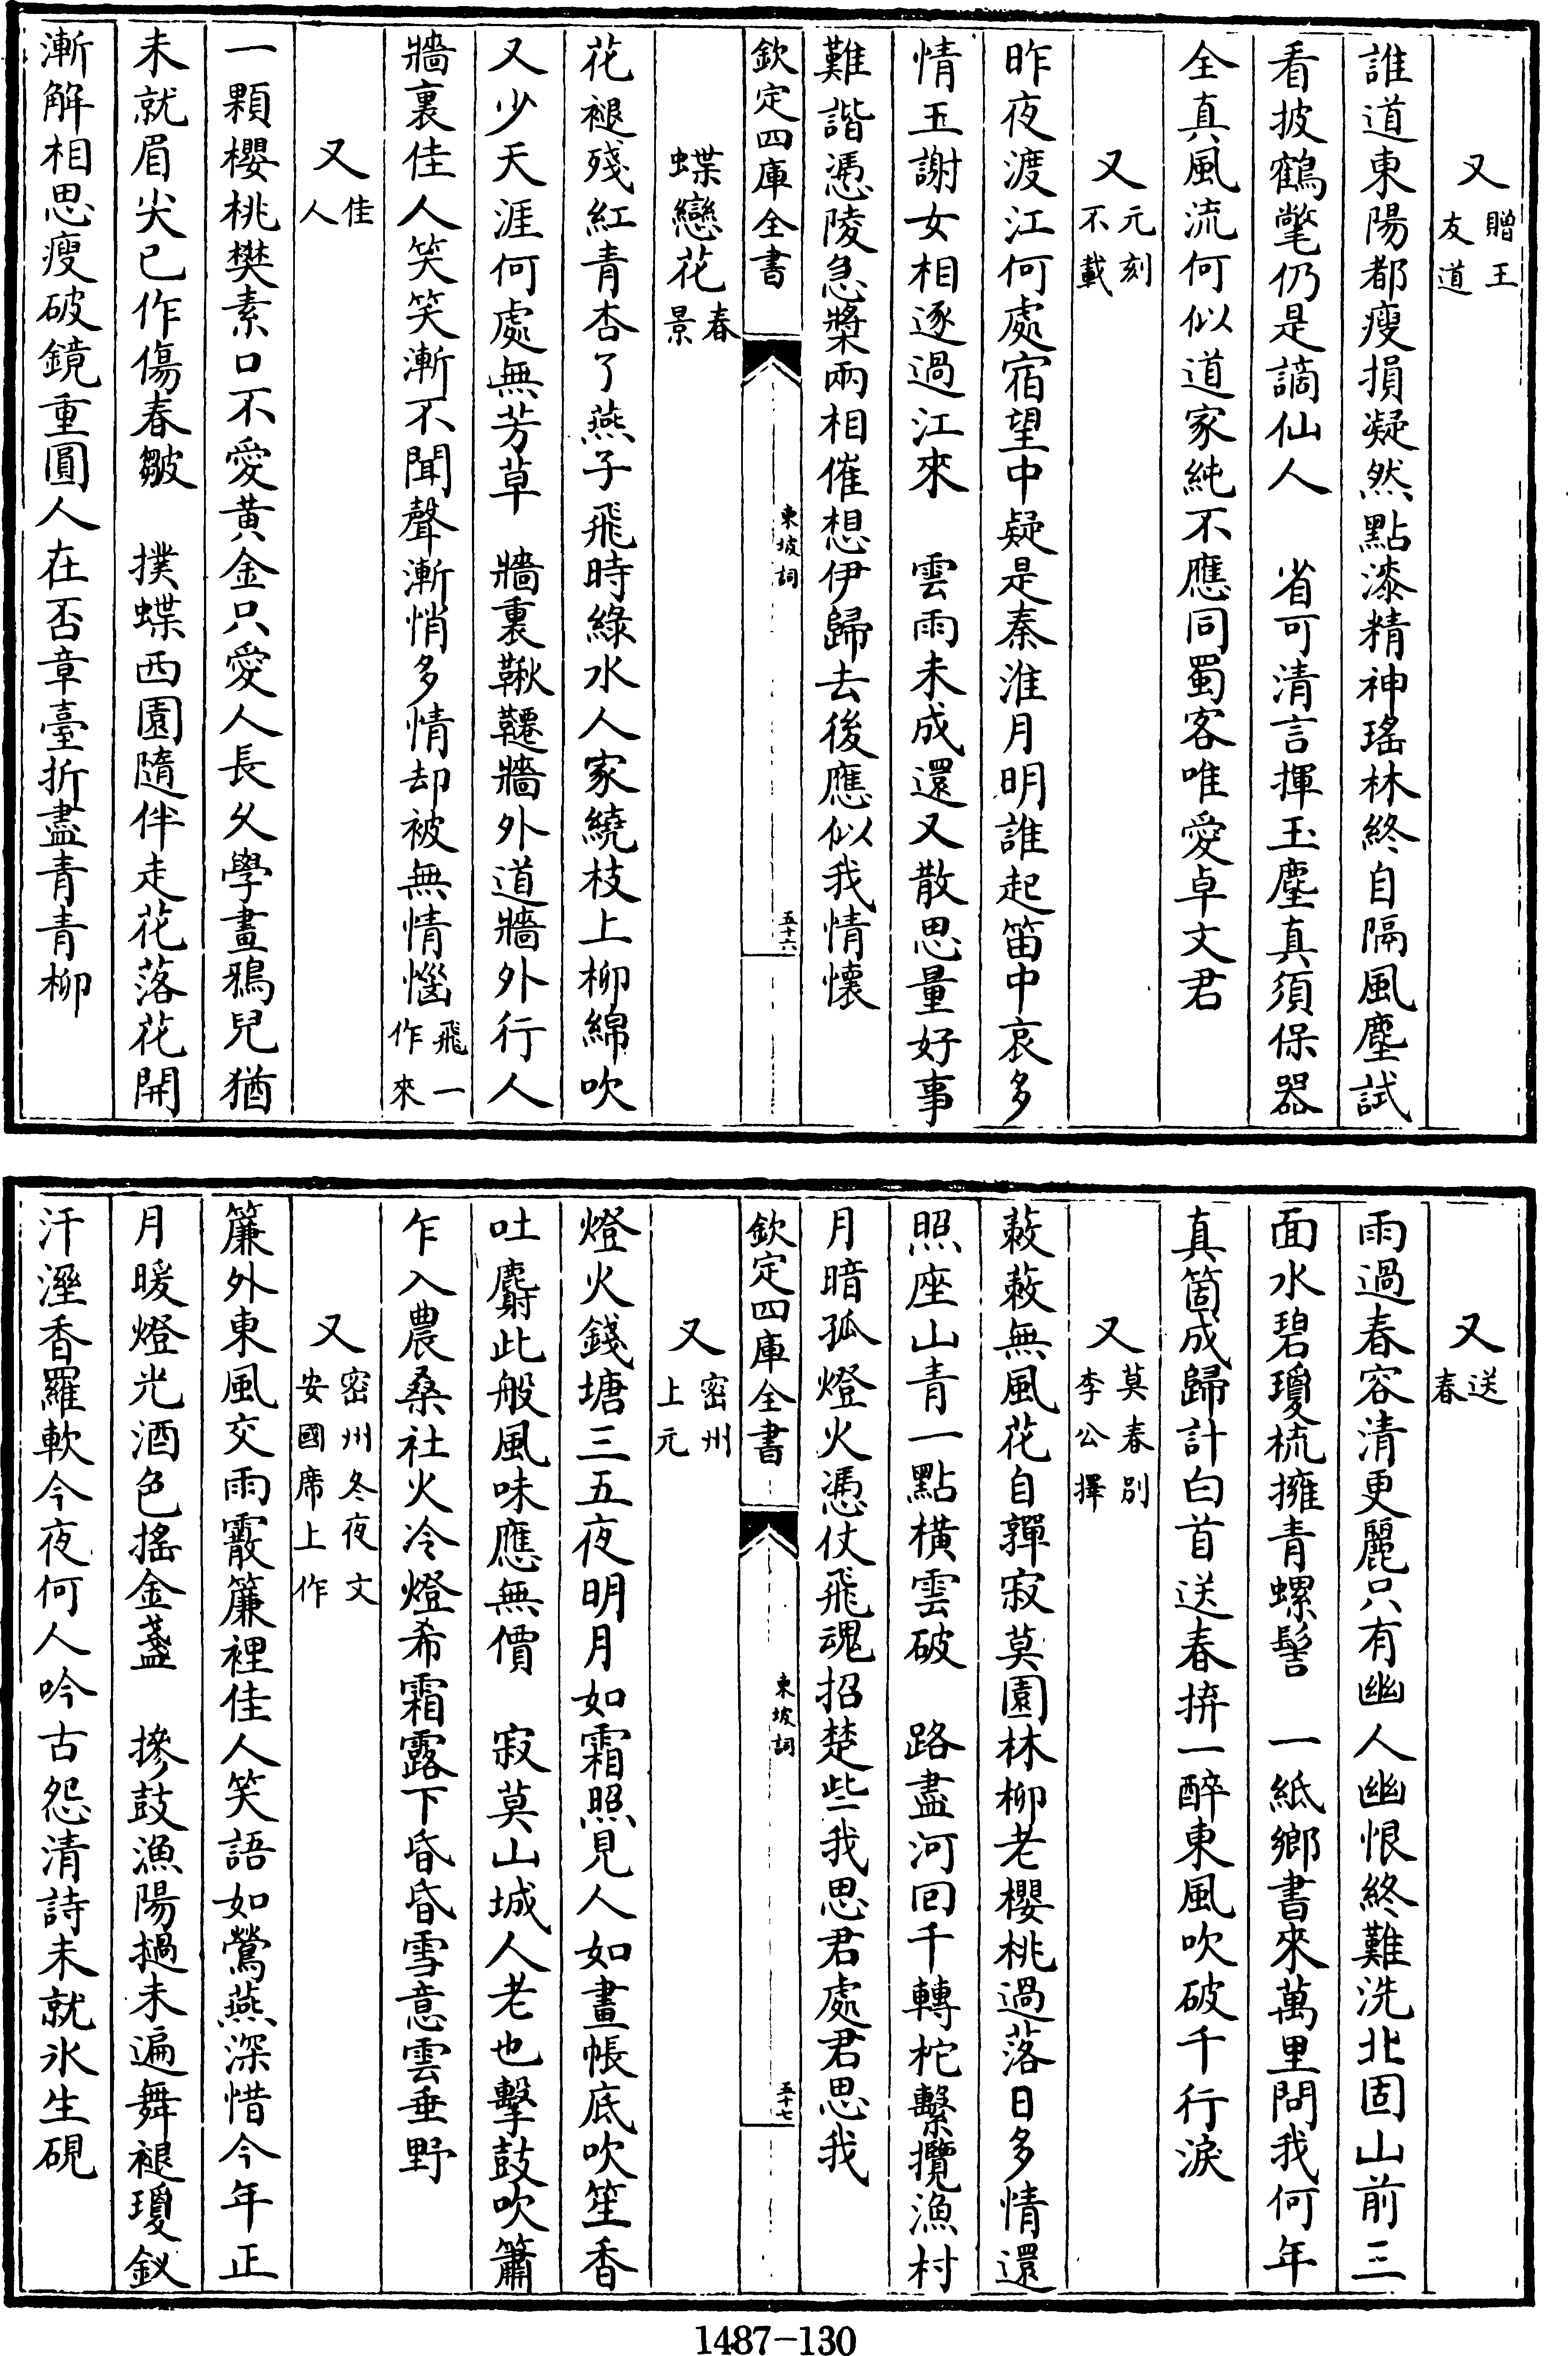 又贈王友道
誰道東陽都瘦損凝然點漆精神瑤林終自隔風塵試
看披鶴氅仍是謫仙人　省可清言揮玉塵真須保器
全真風流何似道家純不應同蜀客唯愛卓文君
又元刻不載
昨夜渡江何處宿望中疑是秦淮月明誰起笛中哀多
情王謝女相逐過江來　雲雨未成還又散思量好事
難諧憑陵急槳兩相催想伊歸去後應似我情懷
欽定四庫全書　東坡詞　五十六
蝶戀花春景
花褪殘紅青杏了燕子飛時綠水人家繞枝上柳綿吹
又少天涯何處無芳草　牆裏鞦韆牆外道牆外行人
牆裏佳人笑笑漸不聞聲漸悄多情却被無情惱飛一作來
又佳人
一顆櫻桃樊素口不愛黃金只愛人長久學畫鴉兒猶
未就眉尖已作傷春皺　撲蝶西園隨伴走花落花開
漸解相思瘦破鏡重圓人在否章臺折盡青青柳
又送春
雨過春容清更麗只有幽人幽恨終難洗北固山前三
面水碧瓊梳擁青螺髻　一紙鄉書來萬里問我何年
真箇成歸計白首送春拚一醉東風吹破千行淚
又莫春別李公擇
蔌蔌無風花自嚲寂莫園林柳老櫻桃過落日多情還
照座山青一點橫雲破　路盡河回千轉柁繫纜漁村
月暗孤燈火憑仗飛魂招楚些我思君處君思我
欽定四庫全書　東坡詞　五十七
又密州上元
燈火錢塘三五夜明月如霜照見人如畫帳底吹笙香
吐麝此般風味應無價　寂莫山城人老也擊鼓吹簫
乍入農桑社火冷燈希霜露下昏昏雪意雲垂野
又密州冬夜文安國席上作
簾外東風交雨霰簾裡佳人笑語如鶯燕深惜今年正
月暖燈光酒色搖金盞　摻鼓漁陽撾未遍舞褪瓊釵
汗溼香羅軟今夜何人吟古怨清詩未就氷生硯
1487-130